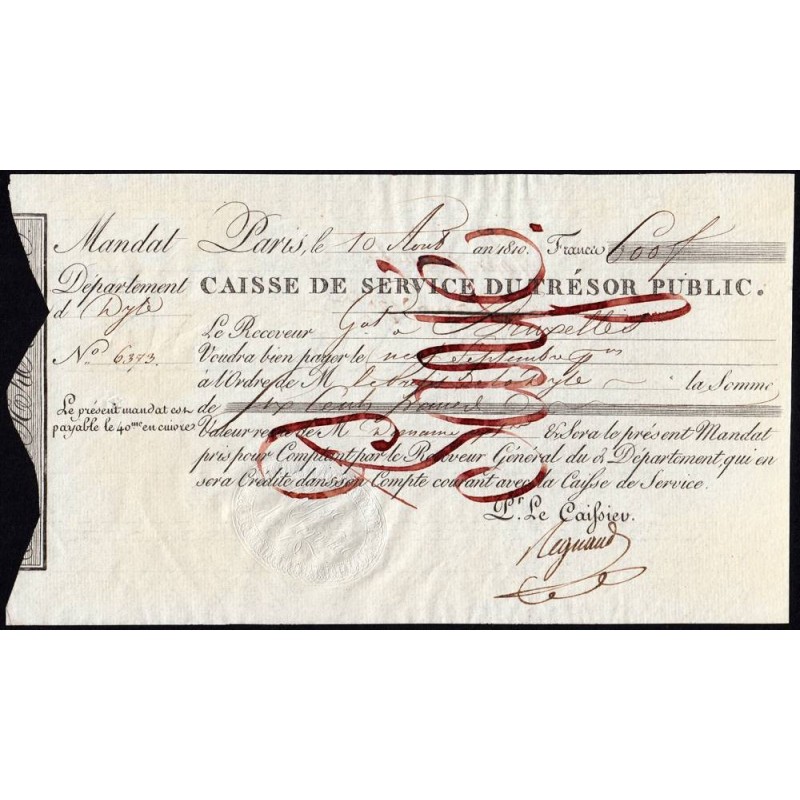 Mandat Paris, le 10 Aout an 1810. Francs 600 f
Département CAISSE DE SERVICE DU TRÉSOR PUBLIC.
d Dyle
Le Receveur Gal à Bruxelles
No. 6373. Voudra bien payer le neuf Septembre
à l'Ordre de M la Somme
Le présent mandat est
payable le 40me en cuivre
de Six Cents francs
Valeur reçue de M & Sera le présent Mandat
pris pour Comptant par le Receveur Général du d. Département, qui en
sera Crédité dans son Compte courant avec la Caisse de Service.
Pr. Le Caissier.
Regnaud